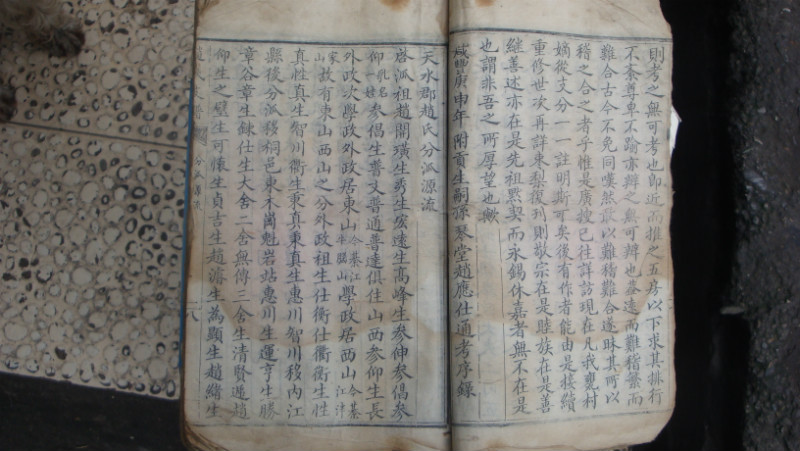 則考之無可考也即近而推之五房以下求其排行
不紊尊卑不踰亦辨之無可辨也蓋遠而難稽繁而
難合古今不免同嘆然敢以難稽難合遂昧其所以
稽之合之者乎惟是廣搜已往詳訪現在凡我夔村
嫡從支分一一註明斯可矣後有作者能由是接續
重修世次再詳東梨復刊則敬宗在是睦族在是善
繼善述亦在是先祖默契而永錫休嘉者無不在是
也謂非吾之所厚望也歟
咸豐庚申年 附貢生嗣孫琴堂趙應仕通考序錄
天水郡趙氏分派源流
啓派祖趙閏璜生秀生宏遠生高峰生參伸參倡參
仰乳名一娃參倡生普文普通普達俱住山西參仰生長
外政次學政外政居東山今綦江生腸山學政居西山今綦江津
山家故有東山西山之分外政祖生仕衡仕衢衡生性
真性真生智川衢生東真東真生惠川智川移內江
縣後分派移桐邑東木崗魁岩站惠川生運亨生勝
章谷章生餗仕生大舍二舍無傳三舍生清賢遁趙
仰生之璧生可懷生貞吉生趙濬生為顯生趙緒生
分派源流
八